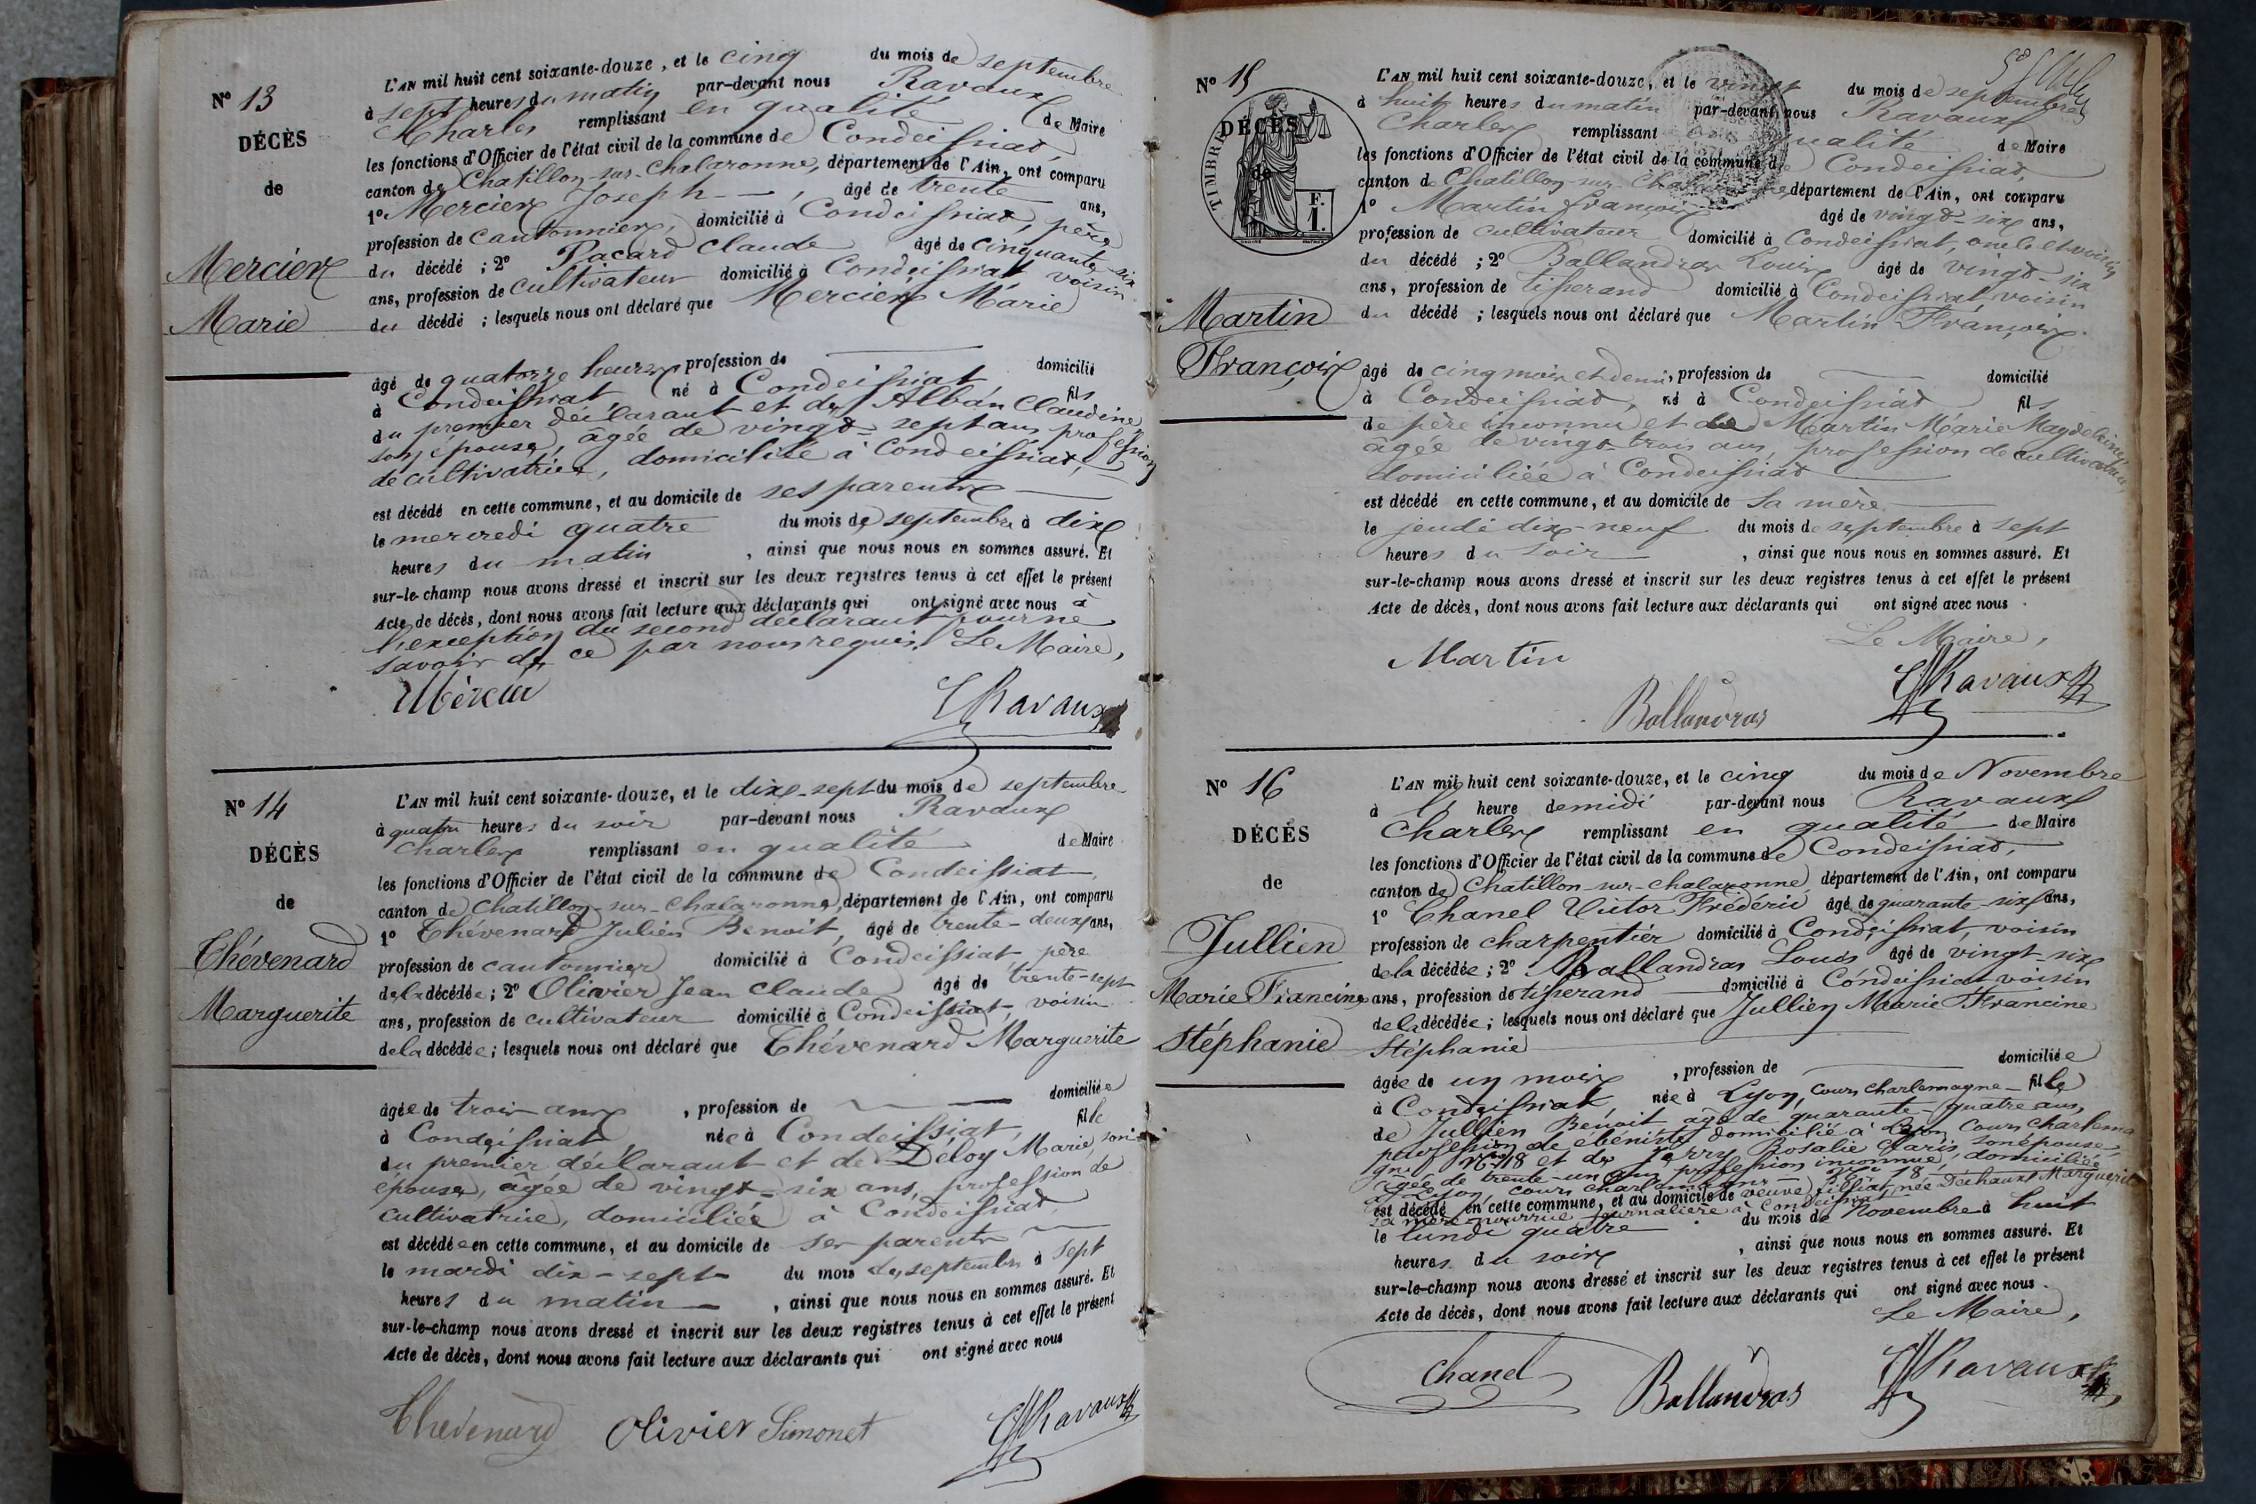 N° 13
DÉCÈS
de
Mercier
Marie
L'AN mil huit cent soixante-douze, et le cinq du mois de septembre
à sept heures du matin par-devant nous Ravaux
Charles remplissant en qualité de Maire
les fonctions d'Officier de l'état civil de la commune de Condeissiat,
canton de Chatillon-sur-Chalaronne, département de l'Ain, ont comparu
1° Mercier Joseph, âgé de trente ans,
profession de cantonnier, domicilié à Condeissiat, père
du décédé ; 2° Pacard Claude âgé de cinquante-six
ans, profession de cultivateur domicilié à Condeissiat voisin
du décédé ; lesquels nous ont déclaré que Mercier Marie
âgé de quatorze heures profession de domicilié
à Condeissiat né à Condeissiat fils
du premier déclarant et de Alban Claudine
son épouse, âgée de vingt-sept ans profession
de cultivatrice, domiciliée à Condeissiat,
est décédé en cette commune, et au domicile de ses parents
le mercredi quatre du mois de septembre à dix
heures du matin, ainsi que nous nous en sommes assuré. Et
sur-le-champ nous avons dressé et inscrit sur les deux registres tenus à cet effet le présent
Acte de décès, dont nous avons fait lecture aux déclarants qui ont signé avec nous à
l'exception du second déclarant pour ne
savoir de ce par nous requis. Le Maire,
Mercier
ChRavaux
N° 14
DÉCÈS
de
Thévenard
Marguerite
L'AN mil huit cent soixante-douze, et le dix-sept du mois de septembre
à quatre heures du soir par-devant nous Ravaux
Charles remplissant en qualité de Maire
les fonctions d'Officier de l'état civil de la commune de Condeissiat
canton de Chatillon-sur-Chalaronne, département de l'Ain, ont comparu
1° Thévenard Julien Benoit, âgé de trente-deux ans,
profession de cantonnier domicilié à Condeissiat père
de la décédée ; 2° Olivier Jean Claude âgé de trente-sept
ans, profession de cultivateur domicilié à Condeissiat, voisin
de la décédée ; lesquels nous ont déclaré que Thévenard Marguerite
âgée de trois ans, profession de domiciliée
à Condeissiat née à Condeissiat, fille
du premier déclarant et de Déloy Marie son
épouse, âgée de vingt-six ans, profession de
cultivatrice, domiciliée à Condeissiat,
est décédée en cette commune, et au domicile de ses parents
le mardi dix-sept du mois de septembre à sept
heures du matin, ainsi que nous nous en sommes assuré. Et
sur-le-champ nous avons dressé et inscrit sur les deux registres tenus à cet effet le présent
Acte de décès, dont nous avons fait lecture aux déclarants qui ont signé avec nous
Thévenard Olivier Simonet ChRavaux
N° 15
DÉCÈS
de
TIMBRE
F.
1.
Martin
François
L'AN mil huit cent soixante-douze, et le vingt du mois de septembre
à huit heures du matin par-devant nous Ravaux
Charles remplissant en qualité de Maire
les fonctions d'Officier de l'état civil de la commune de Condeissiat,
canton de Chatillon-sur-Chalaronne, département de l'Ain, ont comparu
1° Martin François âgé de vingt six ans,
profession de cultivateur domicilié à Condeissiat, oncle et voisin
du décédé ; 2° Ballandras Louis âgé de vingt-six
ans, profession de tisserand domicilié à Condeissiat, voisin
du décédé ; lesquels nous ont déclaré que Martin François
âgé de cinq mois et demi, profession de domicilié
à Condeissiat, né à Condeissiat fils
de père inconnu et de Martin Marie Magdeleine,
âgée de vingt-trois ans, profession de cultivatrice,
domiciliée à Condeissiat
est décédé en cette commune, et au domicile de sa mère
le jeudi dix-neuf du mois de septembre à sept
heures du soir, ainsi que nous nous en sommes assuré. Et
sur-le-champ nous avons dressé et inscrit sur les deux registres tenus à cet effet le présent
Acte de décès, dont nous avons fait lecture aux déclarants qui ont signé avec nous.
Le Maire,
Martin
Ballandras
ChRavaux
N° 16
DÉCÈS
de
Jullien
Marie Francine
Stéphanie
L'AN mil huit cent soixante-douze, et le cinq du mois de Novembre
à heure de midi par-devant nous Ravaux
Charles remplissant en qualité de Maire
les fonctions d'Officier de l'état civil de la commune de Condeissiat,
canton de Chatillon-sur-Chalaronne, département de l'Ain, ont comparu
1° Chanel Victor Frédéric âgé de quarante-six ans,
profession de charpentier domicilié à Condeissiat, voisin
de la décédée ; 2° Ballandras Louis âgé de vingt-six
ans, profession de tisserand domicilié à Condeissiat voisin
de la décédée ; lesquels nous ont déclaré que Jullien Marie Francine
Stéphanie
âgée de un mois, profession de domiciliée
à Condeissiat, née à Lyon, cours Charlemagne fille
de Jullien Benoit âgé de quarante-quatre ans,
profession de ébéniste domicilié à Lyon Cours Charlema
gne, N° 18 et de Jerry Rosalie Claris, son épouse,
âgée de trente-un ans profession inconnue, domiciliée
à Lyon cours charlemagne N° 18
est décédé en cette commune, et au domicile de veuve née Téchaux Marguerite
sa mère nourrice journalière à Condeissiat
le lundi quatre du mois de Novembre à huit
heures du soir, ainsi que nous nous en sommes assuré. Et
sur-le-champ nous avons dressé et inscrit sur les deux registres tenus à cet effet le présent
Acte de décès, dont nous avons fait lecture aux déclarants qui ont signé avec nous.
Le Maire,
Chanel Ballandras ChRavaux